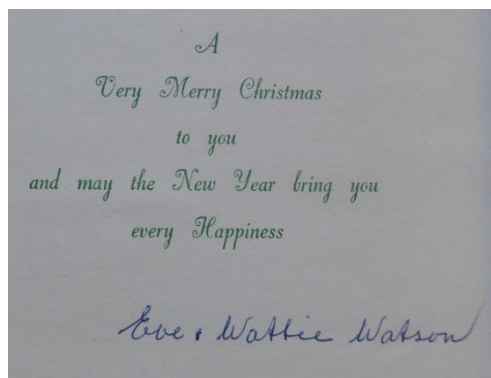 A
Very Merry Christmas
to you
and may the New Year bring you
every Happiness
Eve & Wattie Watson